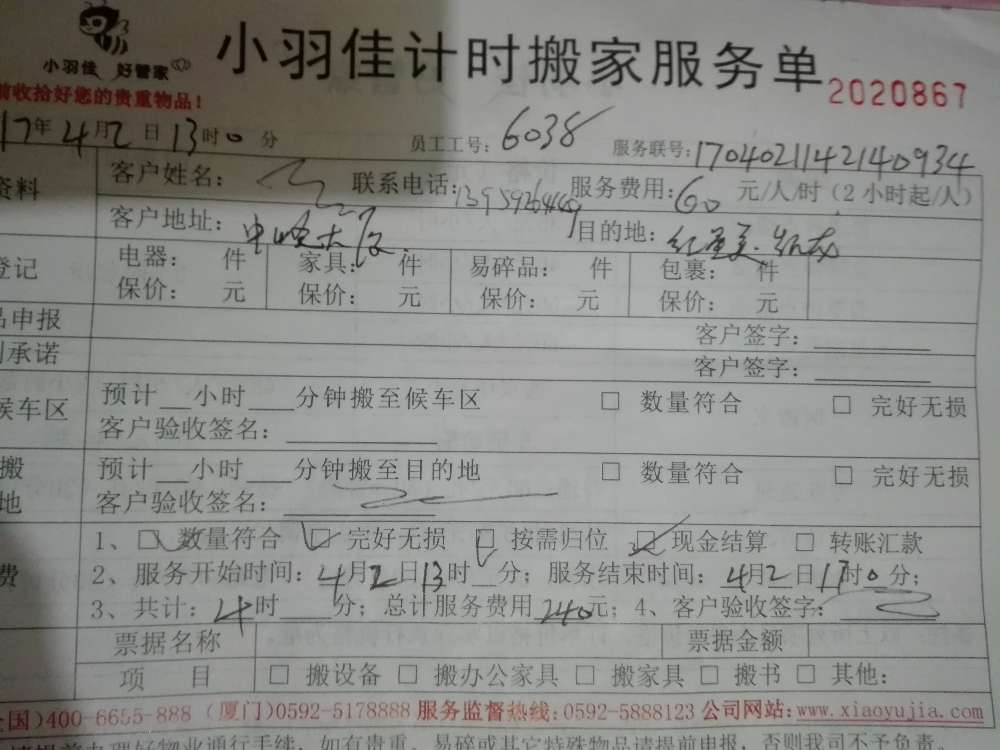 小羽佳 好管家
小羽佳计时搬家服务单 2020867
前收拾好您的贵重物品！
17年4月2日13时0分 员工工号：6038 服务联号：1704021142140934
资料 客户姓名： 联系电话： 服务费用：60元/人/时（2小时起/人）
客户地址： 目的地：红星美凯龙
登记 电器： 件 家具： 件 易碎品： 件 包裹： 件
保价： 元 保价： 元 保价： 元 保价： 元
品申报 客户签字：
别承诺 客户签字：
候车区 预计__小时___分钟搬至候车区 □ 数量符合 □ 完好无损
客户验收签名：
搬 预计__小时___分钟搬至目的地 □ 数量符合 □ 完好无损
地 客户验收签名：
1、☑数量符合 ☑完好无损 ☑按需归位 ☑现金结算 □ 转账汇款
费 2、服务开始时间：4月2日13时__分；服务结束时间：4月2日17时0分；
3、共计：4时___分；总计服务费用240元；4、客户验收签字：
票据名称 票据金额
项 目 □ 搬设备 □ 搬办公家具 □ 搬家具 □ 搬书 □ 其他：
全国)400-6655-888（厦门)0592-5178888 服务监督热线:0592-5888123 公司网站:www.xiaoyujia.com
请提前办理好物业通行手续，如有贵重、易碎或其它特殊物品请提前申报，否则我司不予负责